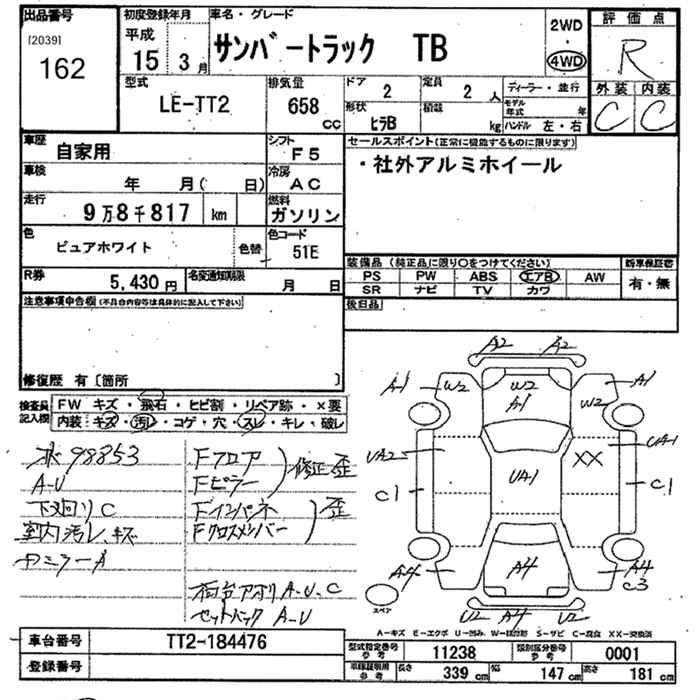 出品番号
[2039]
162
初度登録年月
平成
15 3月
車名・グレード
サンバートラック TB
2WD
・
4WD
評価点
R
外装 内装
C C
型式
LE-TT2
排気量
658
CC
ドア
2
定員
2 人
形状
ヒラB
積載
kg
ディーラー・並行
モデル年式 年
ハンドル 左・右
車歴
自家用
シフト
F5
車検
年 月( 日)
冷房
AC
走行
9万8千817 km
燃料
ガソリン
色
ピュアホワイト
色替
色コード
51E
R券
5,430円
名変通知期限
月 日
セールスポイント(正常に機能するものに限ります)
・社外アルミホイール
装備品(純正品に限り○をつけてください)
PS PW ABS エアB AW
SR ナビ TV カワ
新車保証書
有・無
後日品
注意事項申告欄(不具合内容等は具体的に記入して下さい)
修復歴 有〔箇所 〕
検査員記入欄
FW キズ・飛石・ヒビ割・リペア跡・×要
内装:キズ・汚レ・コゲ・穴・スレ・キレ・破レ
98853
A-U
下廻りC
室内汚レ、キズ
ミラーA
Fフロア
Fピラー
修正歪
Fインパネ
Fクロスメンバー
歪
荷台アオリ A-U-C
セットバック A-U
A2 A2
A1 W2 W2 A1 W2 A1
UA2 XX UA1
C1 UA1 C1
A4 A4 A4 C3
U2 A4 U2
スペア
A-キズ E-エクボ U-凹み W-補修跡 S-サビ C-腐食 XX-交換済
車台番号
TT2-184476
登録番号
型式指定番号 参考
11238
類別区分番号 参考
0001
車検証明用 参考
長さ 339 cm 幅 147 cm 高さ 181 cm